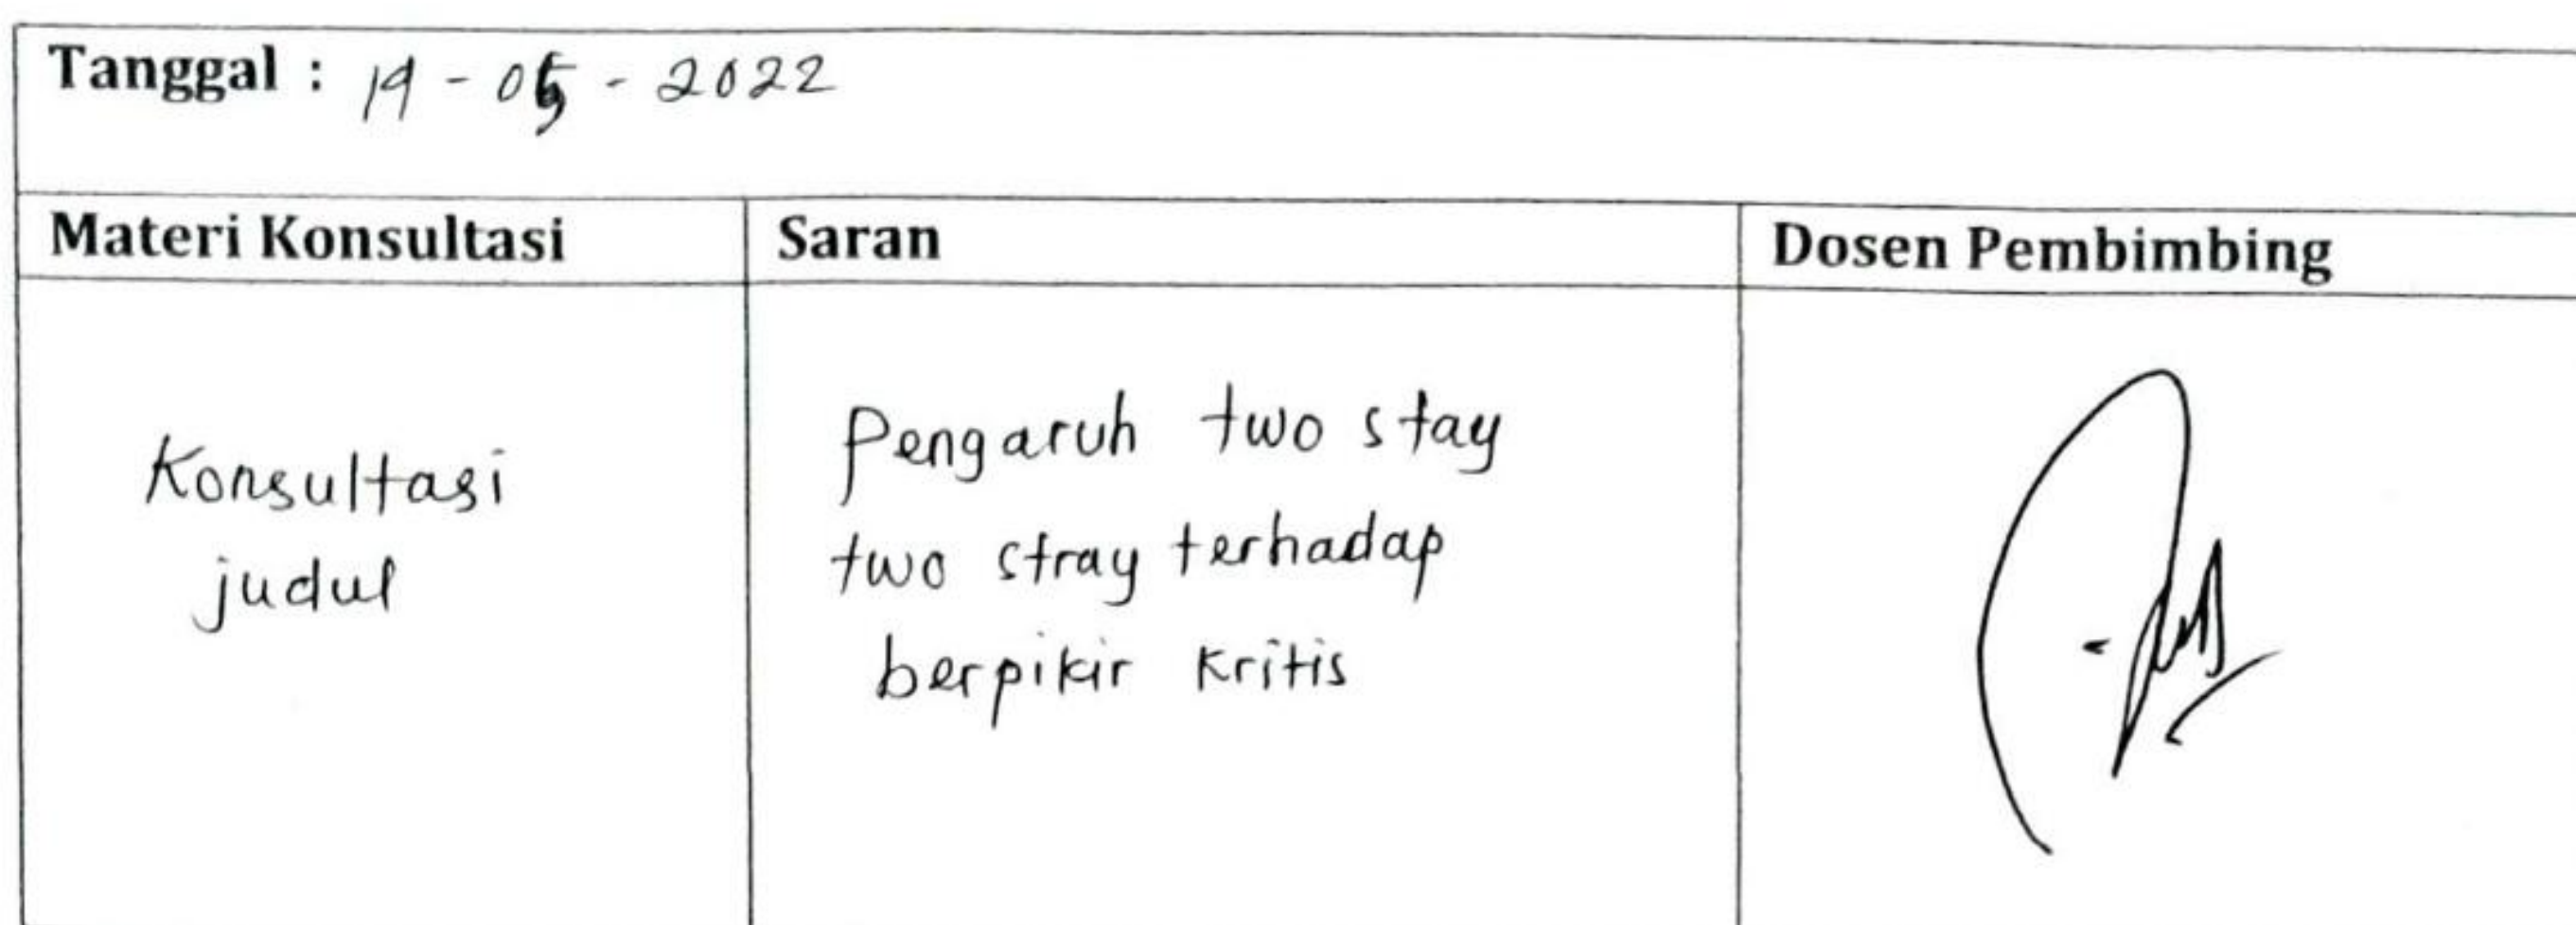 Tanggal : 19 - 05 - 2022
Materi Konsultasi
Saran
Dosen Pembimbing
Konsultasi
judul
Pengaruh two stay
two stray terhadap
berpikir kritis